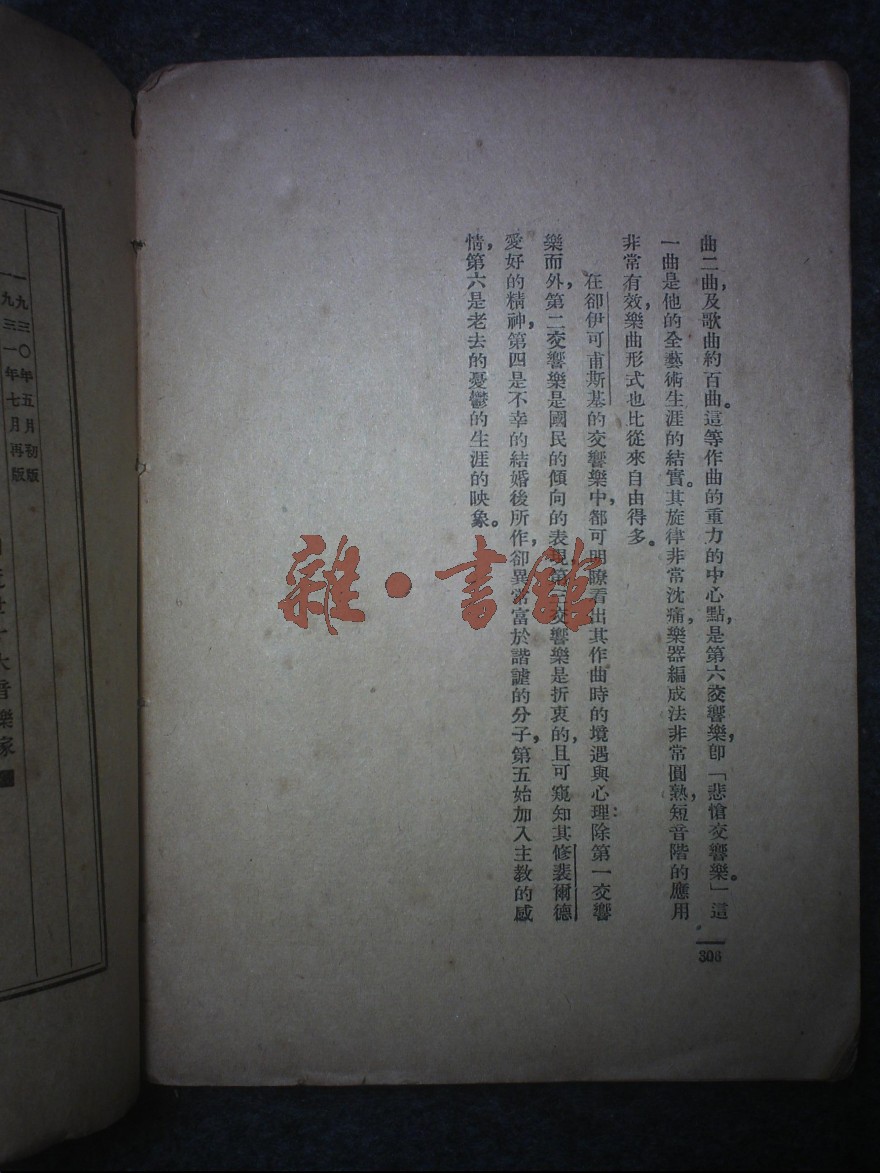 曲二曲，及歌曲約百曲。這等作曲的重力的中心點，是第六交響樂，卽「悲愴交響樂。」這
一曲是他的全藝術生涯的結實。其旋律非常沈痛，樂器編成法非常圓熟，短音階的應用
非常有效，樂曲形式也比從來自由得多。
在卻伊可甫斯基的交響樂中，都可明瞭看出其作曲時的境遇與心理：除第一交響
樂而外，第二交響樂是國民的傾向的表現，第三交響樂是折衷的，且可窺知其修裴爾德
愛好的精神，第四是不幸的結婚後所作，卻異常富於諧謔的分子，第五始加入主教的感
情，第六是老去的憂鬱的生涯的映象。
306
雜·書館
一九三〇年五月初版
一九三一年七月再版
世十大音樂家